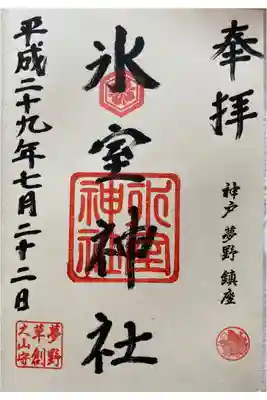 奉拝
神戸 夢野 鎮座
氷室神社
氷室神社
平成二十九年七月二十二日
夢野
草創
大山守